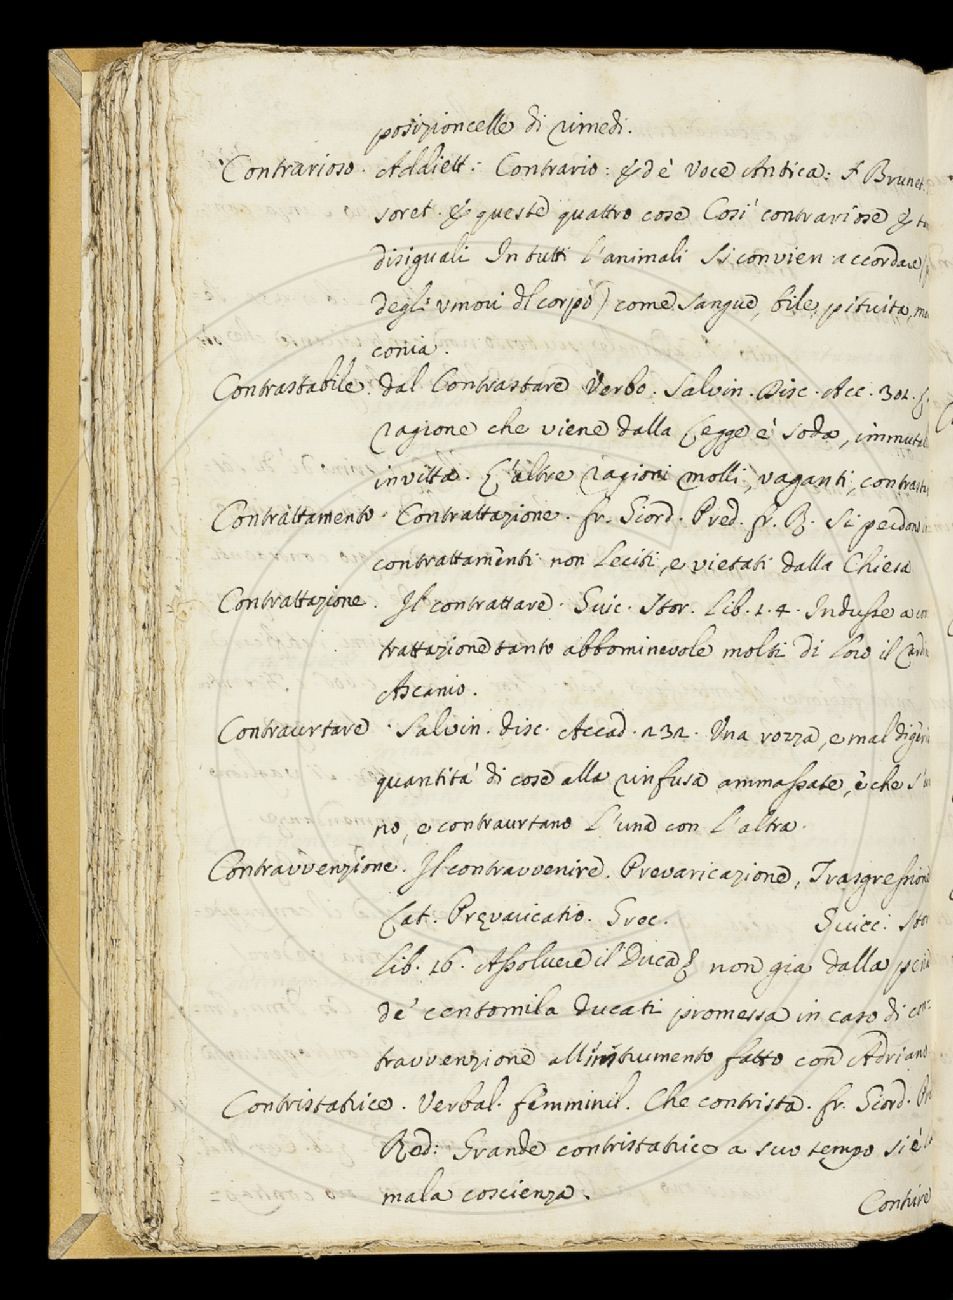 posizioncelle di rimedi.
Contrarioso. Addiett: Contrario: & d è voce Antica: F Brunet.
soret. & queste quattro cose Cosi contrariose &
disiguali In tutti l'animali Si convien accordare
degl' umori dl corpo) come Sangue, bile, pituita,
conia.
Contrastabile. dal Contrastare Verbo. Salvin. Disc. Acc. 301.
ragione che viene dalla Legge è soda,
invitta. L'altre ragioni molli, vaganti,
Contrattamento. Contrattazione. fr. Giord. Pred. fr. R. Si
contrattamenti non Leciti, e vietati dalla Chiesa
Contrattazione. Il contrattare. Guic. Stor. Lib. 1. 4. Indusse a
trattazione tanto abbominevole molti di loro il
Ascanio.
Contraurtare. Salvin. disc. Accad. 132. Una rozza, e mal
quantità di cose alla rinfusa ammassate, e che
no, e contraurtano l'una con l'altra.
Contravvenzione. Il contravvenire. Prevaricazione, Trasgression
Lat. Prevaricatio. Grec. Guicc. Stor
Lib. 16. Assolvere il Duca non gia dalla
de' centomila ducati promessa in caso di con:
travvenzione all'instrumento fatto con Adriano
Contristatrice. Verbal. femminil. Che contrista. fr. Giord. Pr
Red: Grande contristatrice a suo tempo si è
mala coscienza.
Contrire